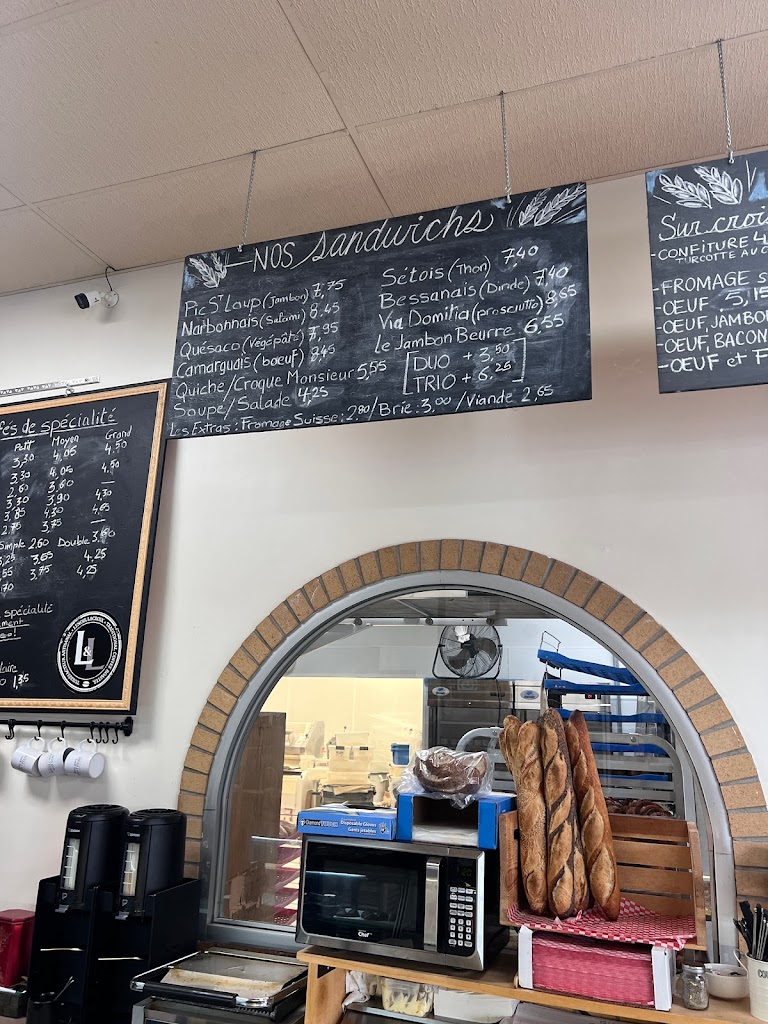 NOS Sandwichs
Pic St Loup (Jambon) 7,75
Narbonnais (Salami) 8.45
Quésaco (Végépâté) 7,95
Camarguais (boeuf) 8.45
Quiche/Croque Monsieur 5,55
Soupe/Salade 4,25
Sétois (Thon) 7,40
Bessanais (Dinde) 7,40
Via Domitia (prosciutto) 8,65
le Jambon Beurre 6.55
DUO + 3,50
TRIO + 6,25
Les Extras: Fromage Suisse: 2,80/Brie: 3,00/Viande 2,65
Sur crois
-CONFITURE 4
TURCOTTE AU C
-FROMAGE S
-OEUF 5,15
-OEUF, JAMBO
-OEUF, BACON
-OEUF et F
fés de spécialité
Petit Moyen Grand
3,30 4,05 4,50
3.30 4,05 4,50
2,60 3,60 —
3,30 3,90 4,30
3,85 4,30 4,65
2,75 3,75 —
Simple 2,60 Double 3,60
3,25 3,65 4,25
,55 3,75 4,25
,70
spécialité
ment
L&L
laire
1,35
Disposable Gloves
Gants jetables
Chef